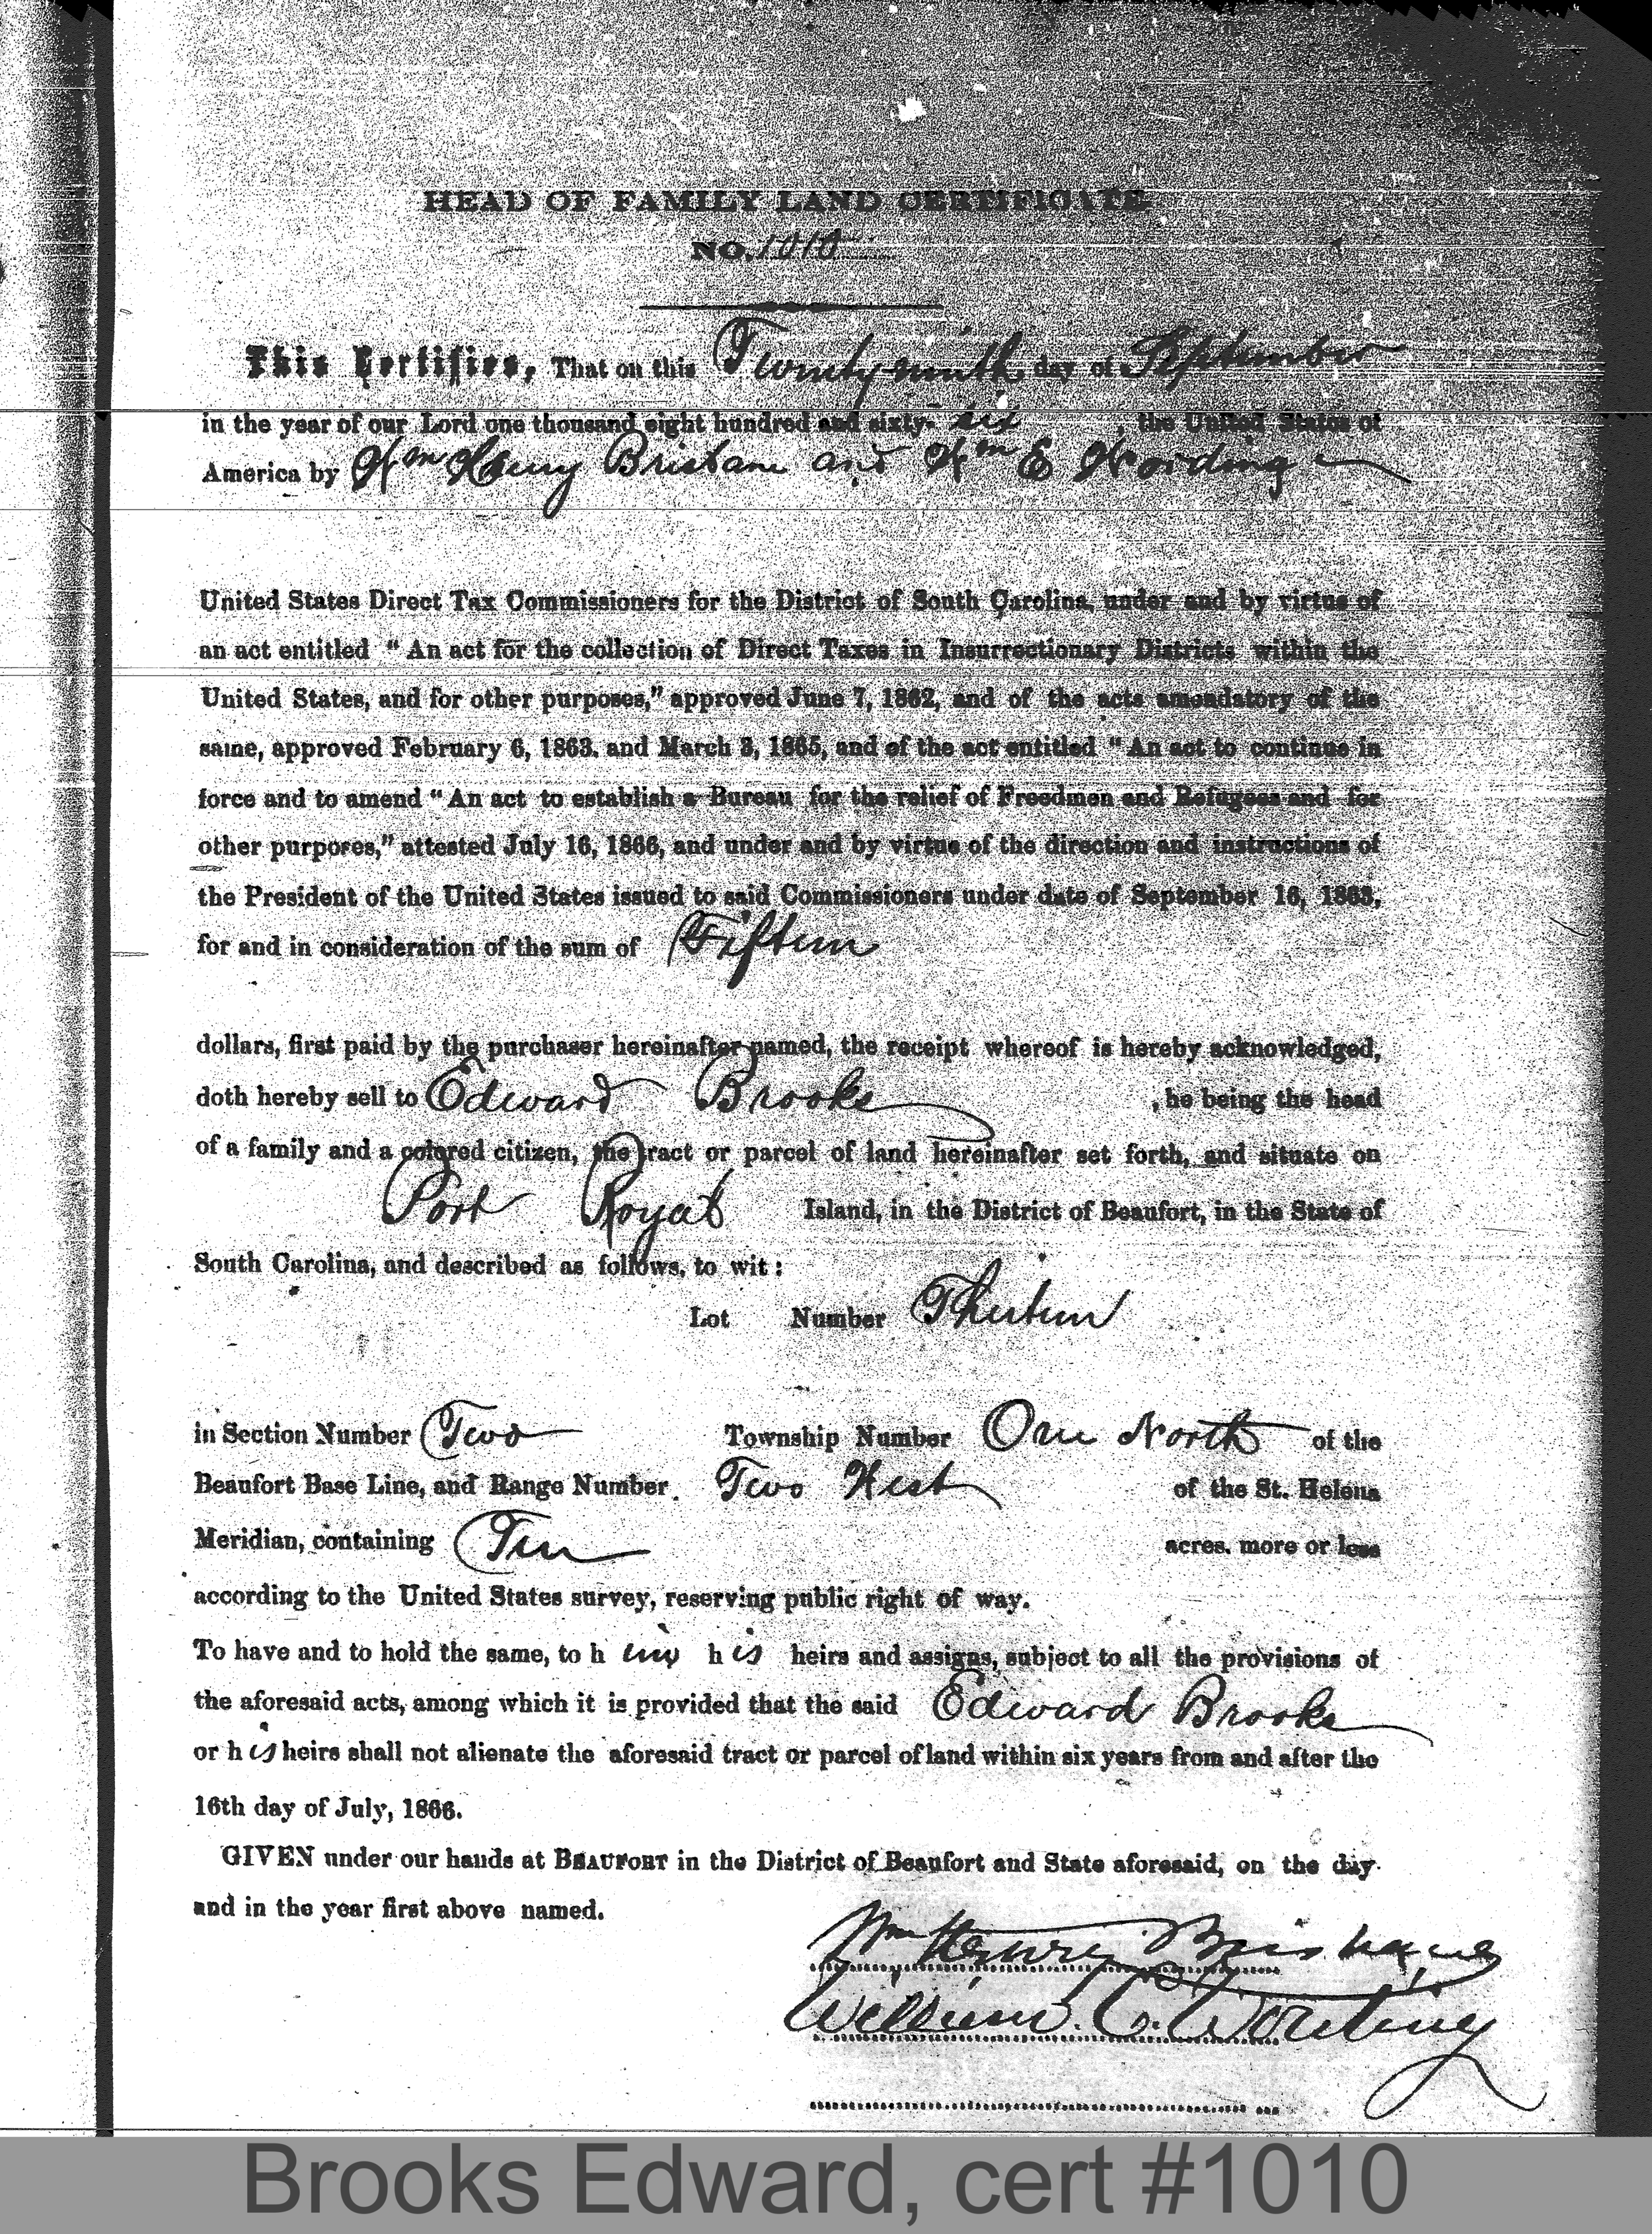 HEAD OF FAMILY LAND CERTIFICATE
NO. 1010
This Certifies, That on this Twenty-ninth day of September
in the year of our Lord one thousand eight hundred and sixty-six, the United States of
America by Wm Henry Brisbane and Wm E Wording
United States Direct Tax Commissioners for the District of South Carolina, under and by virtue of
an act entitled "An act for the collection of Direct Taxes in Insurrectionary Districts within the
United States, and for other purposes," approved June 7, 1862, and of the acts amendatory of the
same, approved February 6, 1863, and March 3, 1865, and of the act entitled "An act to continue in
force and to amend "An act to establish a Bureau for the relief of Freedmen and Refugees and for
other purposes," attested July 16, 1866, and under and by virtue of the direction and instructions of
the President of the United States issued to said Commissioners under date of September 16, 1863,
for and in consideration of the sum of Fifteen
dollars, first paid by the purchaser hereinafter named, the receipt whereof is hereby acknowledged,
doth hereby sell to Edward Brooks, he being the head
of a family and a colored citizen, the tract or parcel of land hereinafter set forth, and situate on
Port Royal Island, in the District of Beaufort, in the State of
South Carolina, and described as follows, to wit:
Lot Number Thirteen
in Section Number Two Township Number One North of the
Beaufort Base Line, and Range Number Two West of the St. Helena
Meridian, containing Ten acres, more or less
according to the United States survey, reserving public right of way.
To have and to hold the same, to him his heirs and assigns, subject to all the provisions of
the aforesaid acts, among which it is provided that the said Edward Brooks
or his heirs shall not alienate the aforesaid tract or parcel of land within six years from and after the
16th day of July, 1866.
GIVEN under our hands at BEAUFORT in the District of Beaufort and State aforesaid, on the day
and in the year first above named.
Wm Henry Brisbane
William E. Wording
Brooks Edward, cert #1010